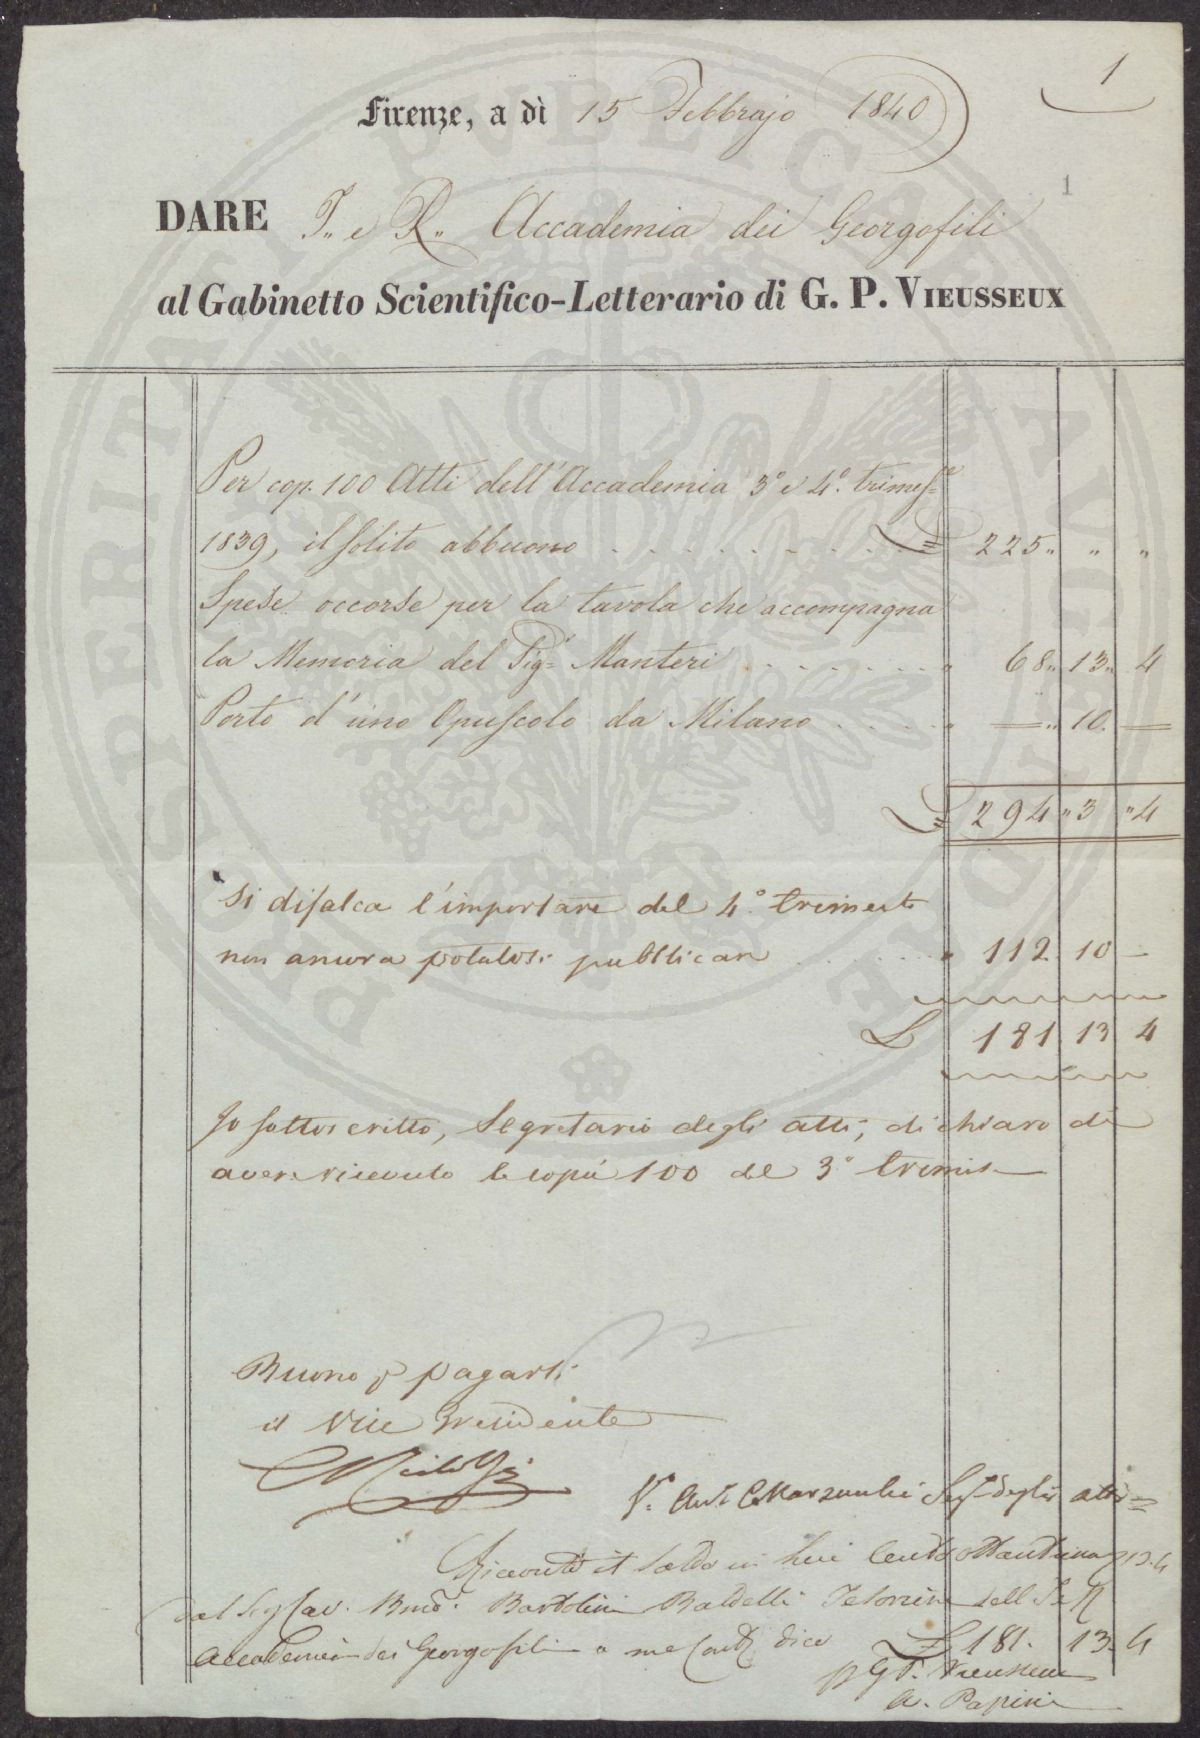 1
Firenze, a dì 15 Febbrajo 1840
1
DARE I. e R. Accademia dei Georgofili
al Gabinetto Scientifico-Letterario di G. P. VIEUSSEUX
PROSPERITATI PVBLICAE AVGENDAE
Per cop. 100 Atti dell'Accademia 3° e 4° trimes.re
1839, il solito abbuono . . . . . . . . £ 225 " " "
Spese occorse per la tavola che accompagna
la Memoria del Sig.r Manteri . . . . . . . " 68 " 13 " 4
Porto d'uno Opuscolo da Milano . . . . . " — " 10. —
£ 294 " 3 " 4
Si difalca l'importare del 4.° trimestre
non ancora potutosi pubblicare . . . . . . . " 112. 10 —
£ 181 13 4
Io sottoscritto, Segretario degli atti, dichiaro di
avere ricevuto le copie 100 del 3° trimes.
Buono p pagarsi
il Vice Presidente
CRidolfi
V. Ant. Marzucchi Seg. degli atti
Ricevuto il saldo in Lire Centottantuna 13.4
dal Sig. Cav. Bartolini Baldelli Tesoriere dell I e R
Accademia dei Georgofili a me dico £ 181. 13. 4
p G. P. Vieusseux
A. Papini